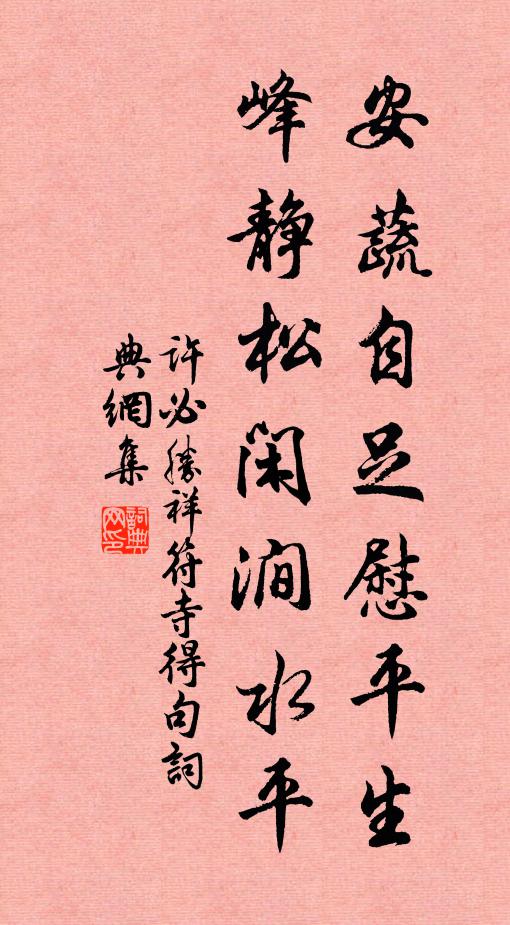 安蔬自足慰平生
峰静松闲涧水平
許必勝祥符寺得句詞
典網集
詞典
网印